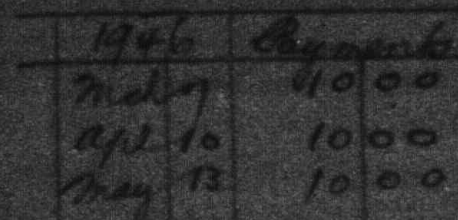 1946 Payments
Mch 7 10 00
Apl 10 10 00
May 13 10 00